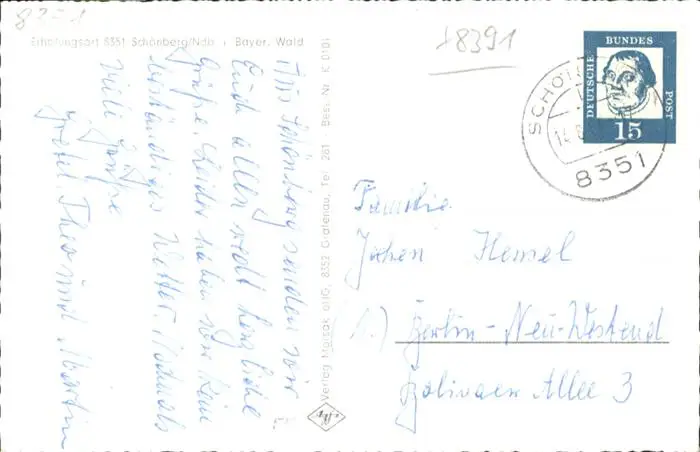 8351
Erholungsort 8351 Schönberg/Ndb. i. Bayer. Wald
Aus Schönberg senden wir
Euch allen recht herzliche
Grüße. Leider haben wir kein
beständiges Wetter. Nochmals
viele Grüße
Gretel, Theo und Martin
Verlag Morsak oHG, 8352 Grafenau, Tel. 281 Best. Nr. K 0101
+8391
DEUTSCHE
BUNDES
POST
15
14.
8351
Familie
Hensel
Berlin-Neu-Westend
Bolivaer Allee 3